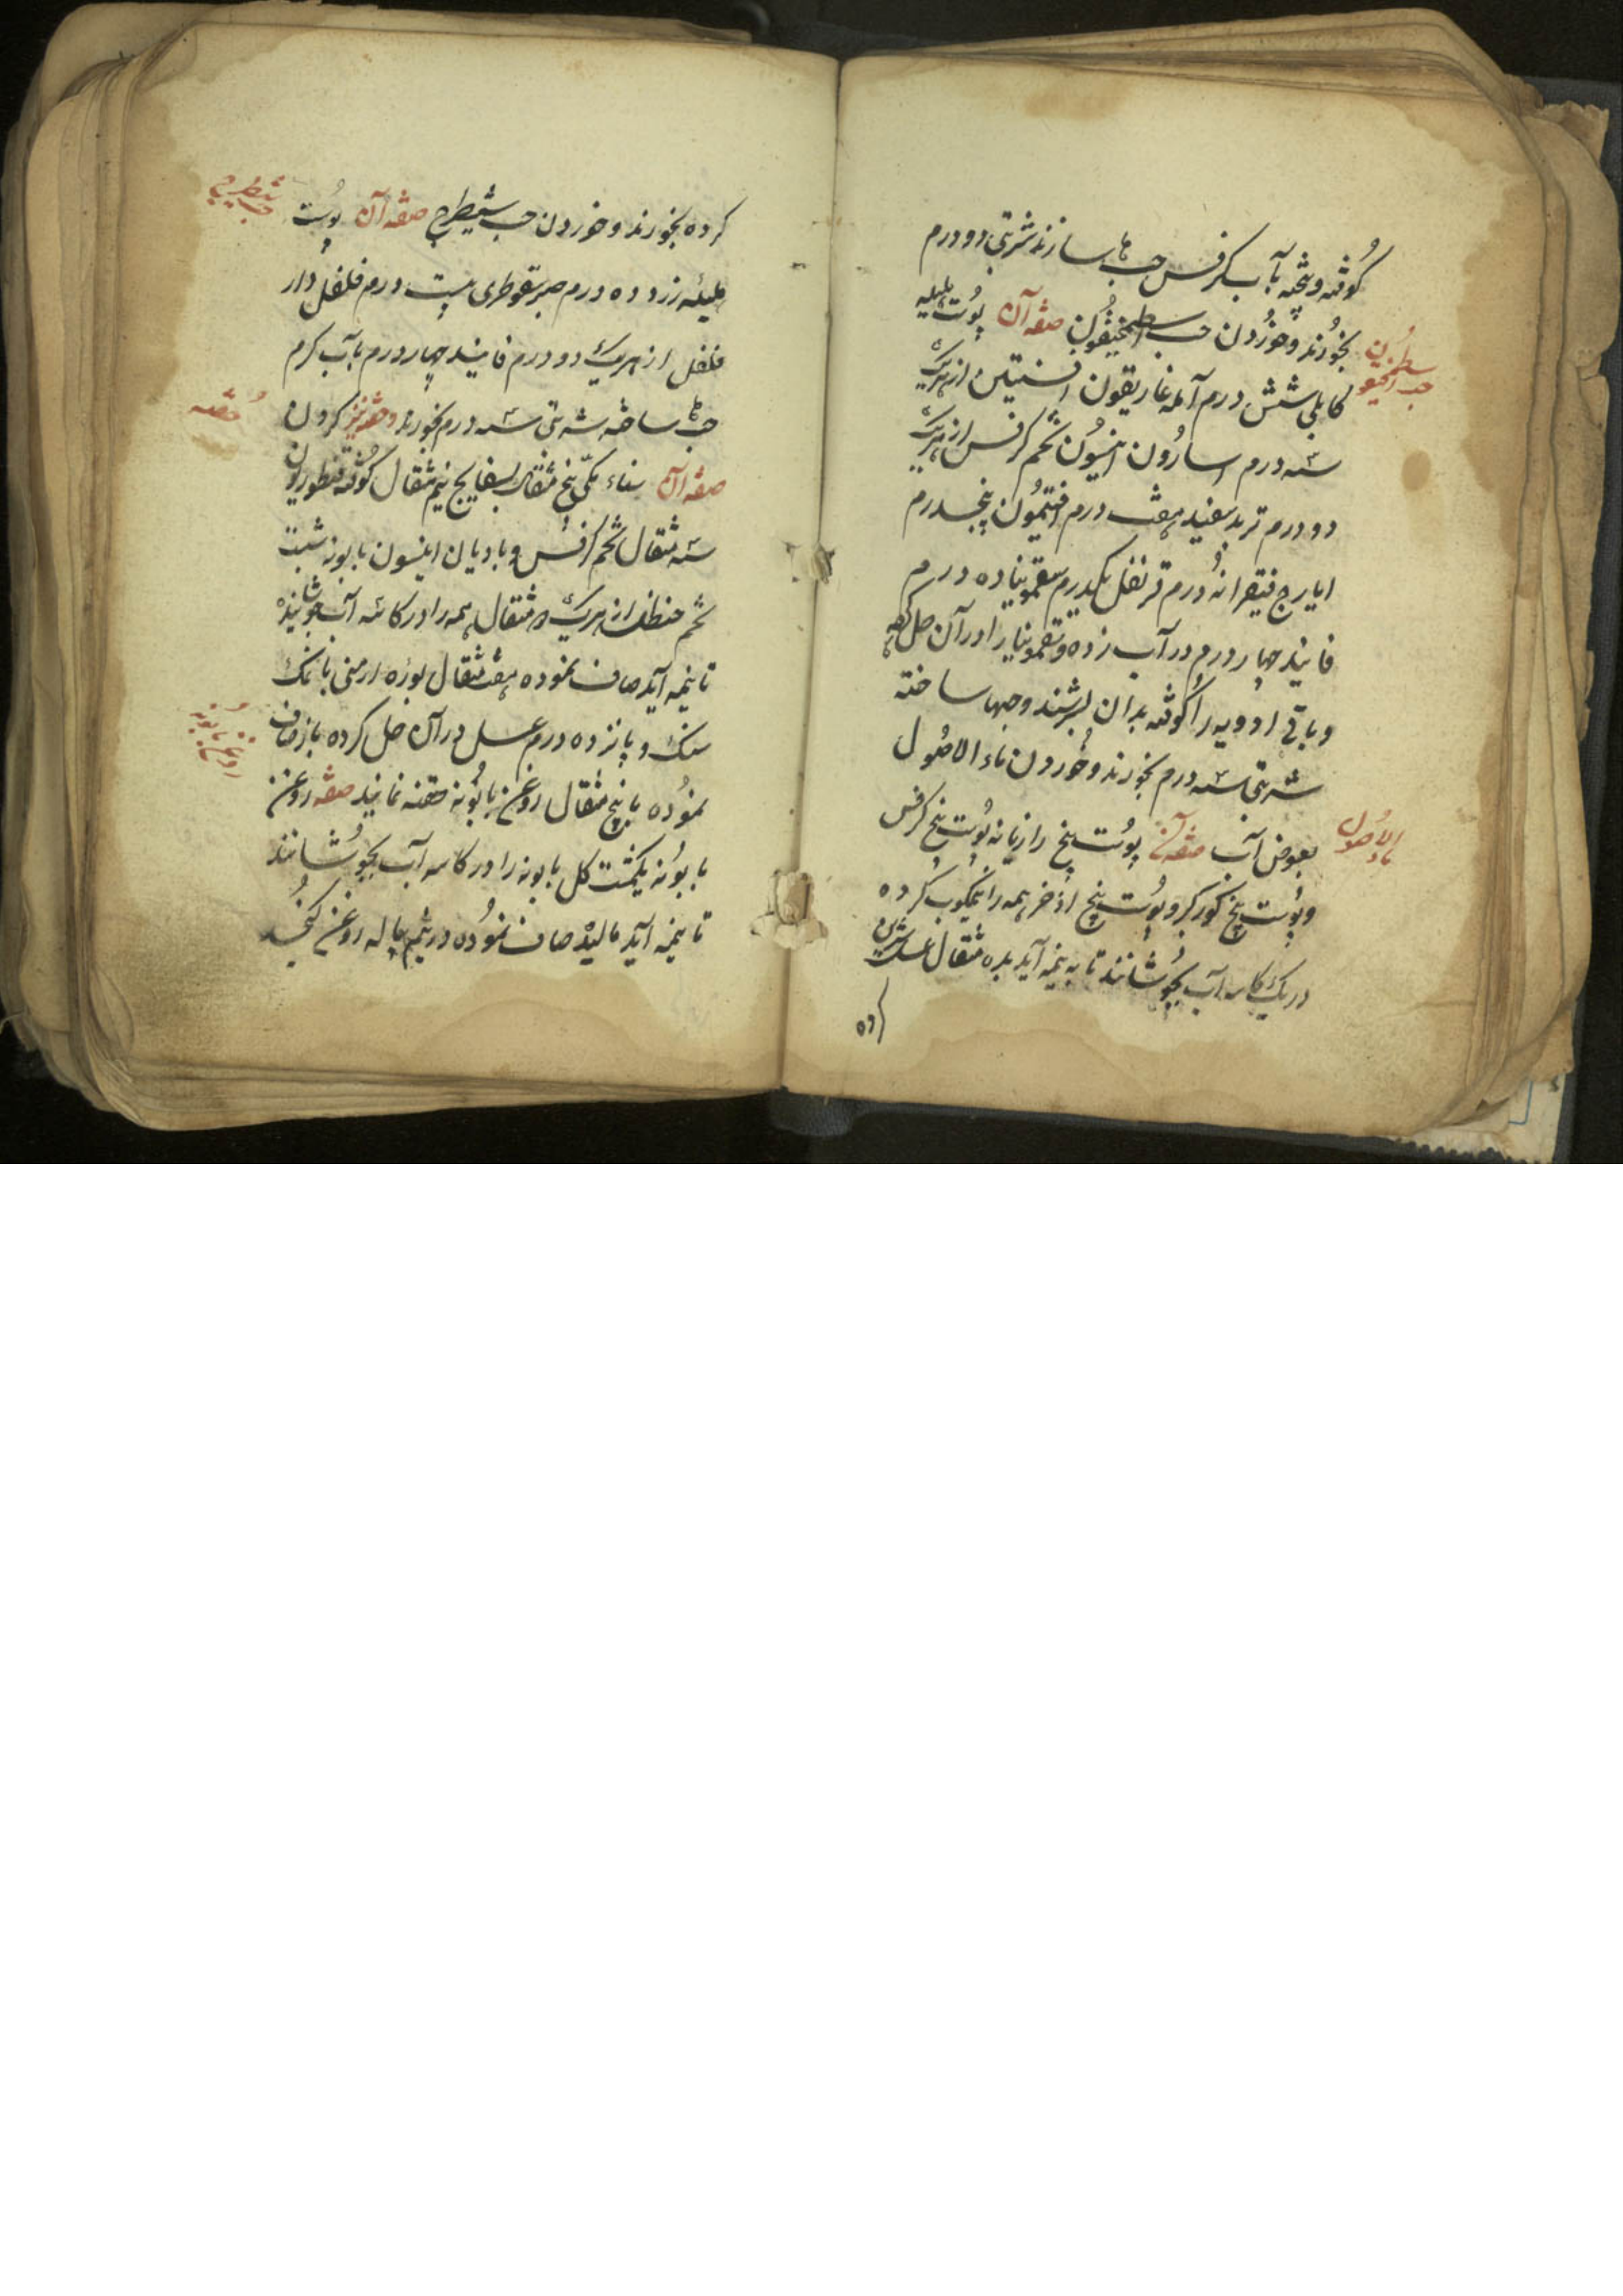 کوفته و بیخته بآب کرفس حب ها سازند شربتی دو درم
بخورند و خوردن حب اسطمخیقون صفة آن پوست هلیله
حب اسطمخیقون
کابلی شش درم آمله غاریقون افسنتین از هریک
سه درم اسارون انیسون تخم کرفس از هریک
دو درم تربد سفید هفت درم افتیمون پنجدرم
ایارج فیقرا نه درم قرنفل یکدرم سقمونیا ده درم
فانیذ چهار درم در آب زده و سقمونیا را در آن حل کرده
و باقی ادویه را کوفته بدان بسرشند و حبها ساخته
شربتی سه درم بخورند و خوردن ماء الاصول
ماء الاصول
بعوض آب صفة آن پوست بیخ رازیانه پوست بیخ کرفس
و پوست بیخ کور کبر و پوست بیخ اذخر همه را نیمکوب کرده
در یک کاسه آب بجوشانند تا به نیمه آید بده مثقال عسل شیرین
کرده
کرده بخورند و خوردن حب شیطرج صفة آن پوست
حب شیطرج
هلیله زرد ده درم صبر سقوطری بیست درم فلفل دار
فلفل از هریک دو درم فانیذ چهار درم بآب کرم
حب ها ساخته شربتی سه درم بخورند و حقنه نیز کردن
حقنه
صفة آن سناء مکی پنج مثقال بسفایج نیم مثقال کوفته قنطوریون
سه مثقال تخم کرفس و بادیان انیسون بابونه شبت
تخم حنظل از هریک ده مثقال همه را در کاسه آب جوشانیده
تا بنیمه آید صاف نموده هفت مثقال بوره ارمنی با نمک
سنک و پانزده درم عسل در آن حل کرده باز صاف
نموده با پنج مثقال روغن بابونه حقنه نمایند صفة روغن
روغن بابونه
بابونه یکمشت کل بابونه را در کاسه آب بجوشانند
تا بنیمه آید مالیده صاف نموده در نیم پیاله روغن کنجد